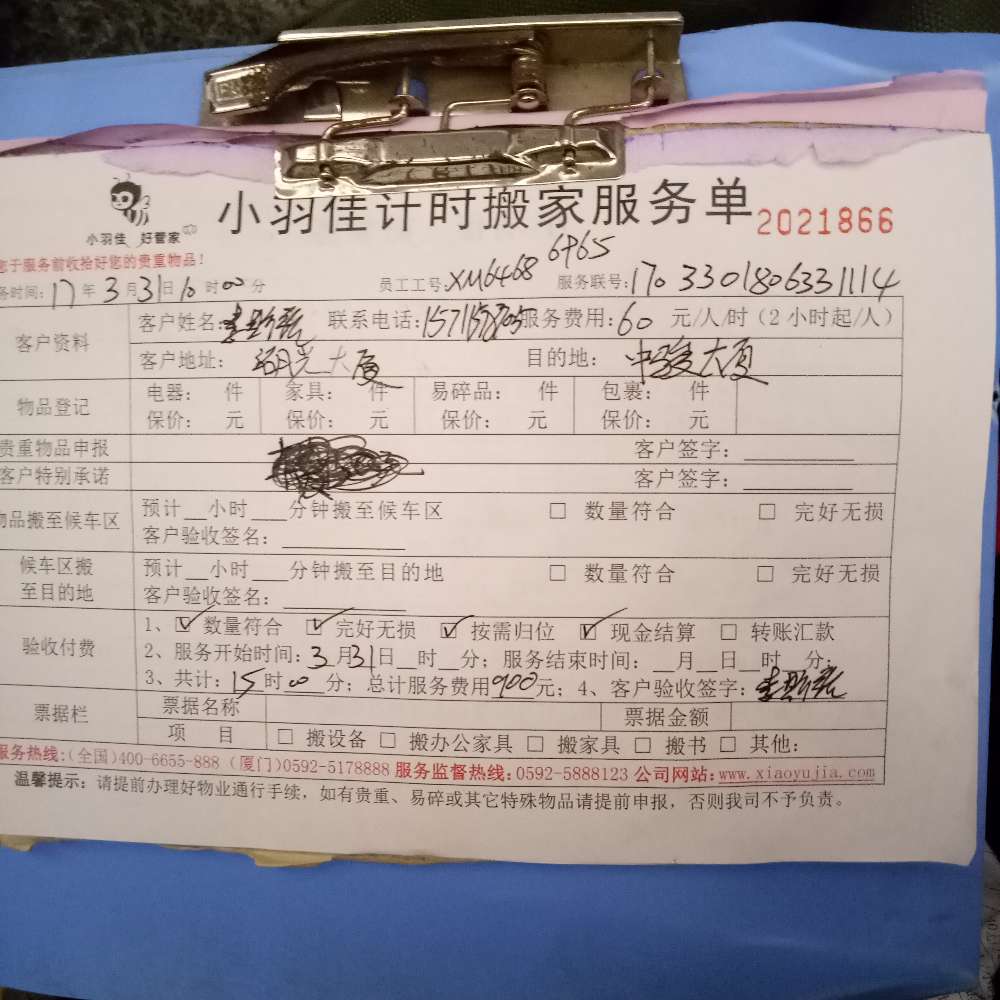 小羽佳计时搬家服务单 2021866
小羽佳 好管家
您于服务前收拾好您的贵重物品!
务时间: 17 年 3 月 31 日 10 时 00 分 员工工号: XM6468 6965 服务联号: 170330180633 1114
客户资料 客户姓名: 联系电话: 服务费用: 60 元/人/时 (2小时起/人)
客户地址: 湖光大厦 目的地: 中骏大厦
物品登记 电器: 件 家具: 件 易碎品: 件 包裹: 件
保价: 元 保价: 元 保价: 元 保价: 元
贵重物品申报 客户签字:
客户特别承诺 客户签字:
物品搬至候车区 预计__小时___分钟搬至候车区 □ 数量符合 □ 完好无损
客户验收签名:
候车区搬至目的地 预计__小时___分钟搬至目的地 □ 数量符合 □ 完好无损
客户验收签名:
验收付费 1、☑ 数量符合 ☑ 完好无损 ☑ 按需归位 ☑ 现金结算 □ 转账汇款
2、服务开始时间: 3月31日__时__分; 服务结束时间: __月__日__时__分;
3、共计: 15时00分; 总计服务费用900元; 4、客户验收签字:
票据栏 票据名称 票据金额
项 目 □ 搬设备 □ 搬办公家具 □ 搬家具 □ 搬书 □ 其他:
服务热线:(全国)400-6655-888 (厦门)0592-5178888 服务监督热线:0592-5888123 公司网站:www.xiaoyujia.com
温馨提示: 请提前办理好物业通行手续, 如有贵重、易碎或其它特殊物品请提前申报, 否则我司不予负责。